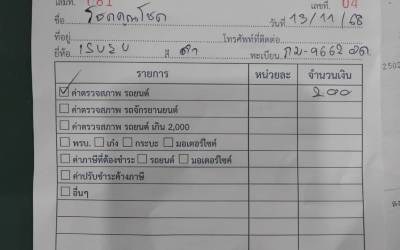 เล่มที่ 181 เลขที่ 04
ชื่อ โชคคูณโชค วันที่ 13/11/68
ที่อยู่ โทรศัพท์ที่ติดต่อ
ยี่ห้อ ISUZU สี ดำ ทะเบียน ภม-9662
รายการ หน่วยละ จำนวนเงิน
ค่าตรวจสภาพ รถยนต์ 200
ค่าตรวจสภาพ รถจักรยานยนต์
ค่าตรวจสภาพ รถยนต์ เกิน 2,000
พรบ. เก๋ง กระบะ มอเตอร์ไซค์
ค่าภาษีที่ต้องชำระ รถยนต์ มอเตอร์ไซค์
ค่าปรับชำระค้างภาษี
อื่นๆ